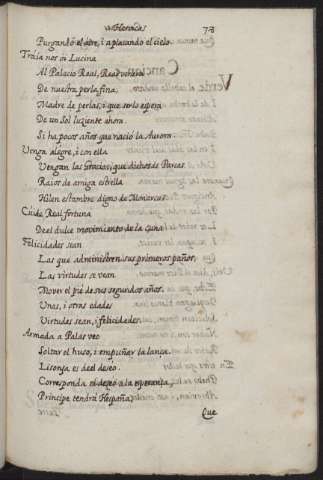 Heroicas 78
Purgando el aire, i aplacando el cielo.
Traiga nos a Lucina
Al Palacio Real, Real venera
De nuestra perla fina,
Madre de perlas, i que serlo espera
De un Sol luziente ahora
Si ha pocos años que nacio la Aurora.
Venga alegre, i con ella
Vengan las Gracias, que dichosas Parcas
Raios de amiga estrella
Hilen estambre digno de Monarcas
Cuide Real fortuna
De el dulce movimiento de la Cuna
Felicidades sean
Las que administren sus primeros paños,
Las virtudes se vean
Mover el pie de sus segundos años.
Unas, i otras edades
Virtudes sean, i felicidades.
Armada a Palas veo
Soltar el huso, i empuñar la lança.
Lisonja es de el deseo.
Corresponda el deseo a la esperança,
Principe tendra Hespaña,
Que